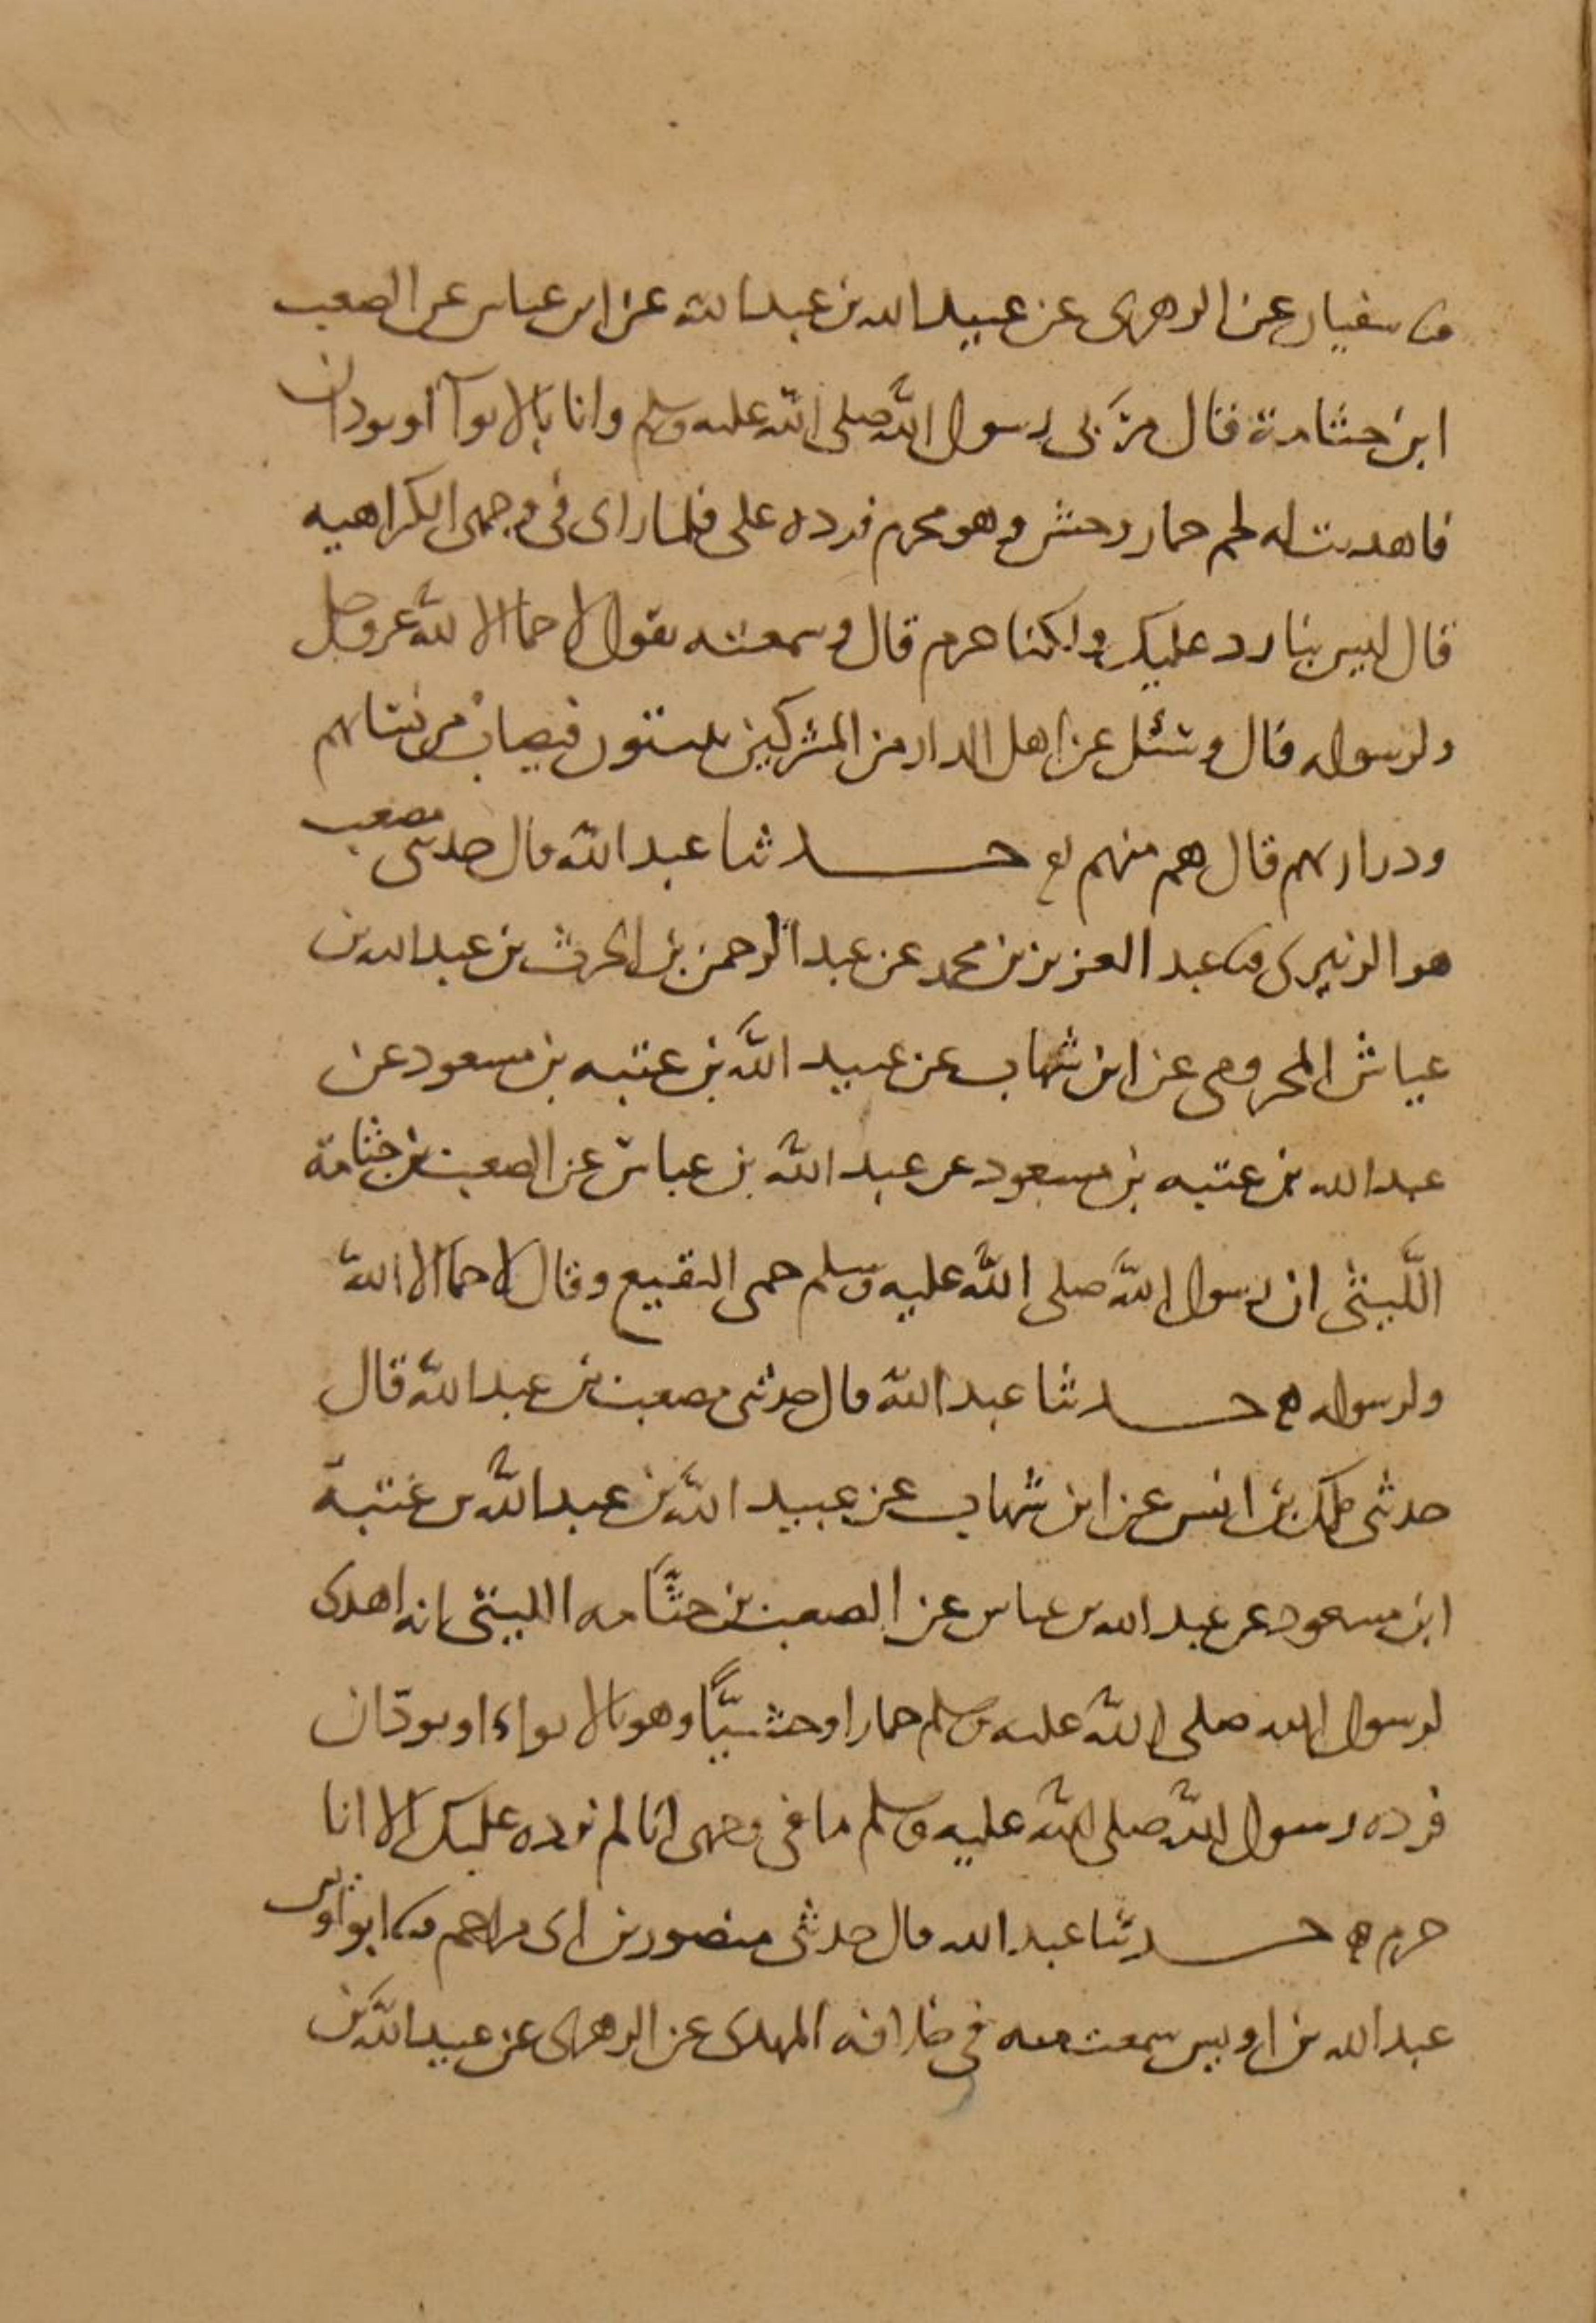 ثنا سفيان عن الزهرى عن عبيد الله بن عبد الله عن ابن عباس عن الصعب
ابن جثامة قال مرّ بى رسول الله صلى الله عليه وسلم وانا بالابوآ او بودان
فاهديت له لحم حمار وحش وهو محرم فرده على فلما راى فى وجهى الكراهيه
قال ليس بنا رد عليك ولكنا حرم قال وسمعته يقول لا حما الا لله عز وجل
ولرسوله قال وسئل عن اهل الدار من المشركين يبيتون فيصاب من نسائهم
وذراريهم قال هم منهم حدثنا عبد الله قال حدثنى مصعب
هو الزبيرى ثنا عبد العزيز بن محمد عن عبد الرحمن بن الحرث بن عبد الله بن
عياش المخزومى عن ابن شهاب عن عبيد الله بن عتبه بن مسعود عن
عبد الله بن عتبه بن مسعود عن عبد الله بن عباس عن الصعب بن جثامة
اللّيثى ان رسول الله صلى الله عليه وسلم حمى النقيع وقال لا حما الا الله
ولرسوله حدثنا عبد الله قال حدثنى مصعب بن عبد الله قال
حدثنى ملك بن انس عن ابن شهاب عن عبيد الله بن عبد الله بن عتبة
ابن مسعود عن عبد الله بن عباس عن الصعب بن جثّامه الليثى انه اهدى
لرسول الله صلى الله عليه وسلم حمارا وحشيًّا وهو بالابواء او بودّان
فرده رسول الله صلى الله عليه وسلم ما فى وجهى انا لم نرده عليك الا انا
حرم حدثنا عبد الله قال حدثنى منصور بن ابى مزاحم ثنا ابو اويس
عبد الله بن اويس سمعت منه فى خلافه المهدى عن الزهرى عن عبيد الله بن